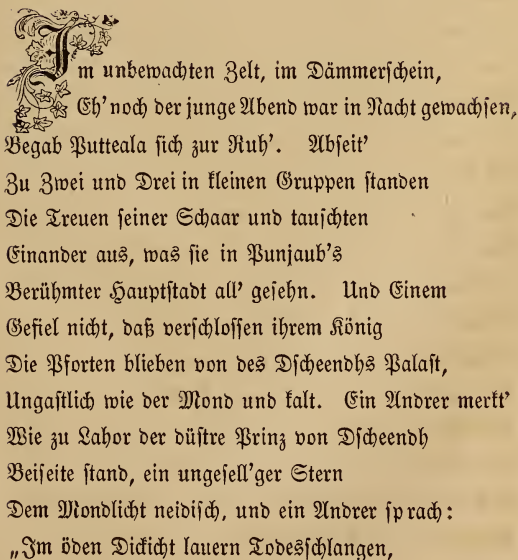 Im unbewachten Zelt, im Dämmerschein,
Eh' noch der junge Abend war in Nacht gewachsen,
Begab Putteala sich zur Ruh'. Abseit'
Zu Zwei und Drei in kleinen Gruppen standen
Die Treuen seiner Schaar und tauschten
Einander aus, was sie in Punjaub's
Berühmter Hauptstadt all' gesehn. Und Einem
Gefiel nicht, daß verschlossen ihrem König
Die Pforten blieben von des Dscheendhs Palast,
Ungastlich wie der Mond und kalt. Ein Andrer merkt'
Wie zu Lahor der düstre Prinz von Dscheendh
Beiseite stand, ein ungesell'ger Stern
Dem Mondlicht neidisch, und ein Andrer sprach:
„Im öden Dickicht lauern Todesschlangen,